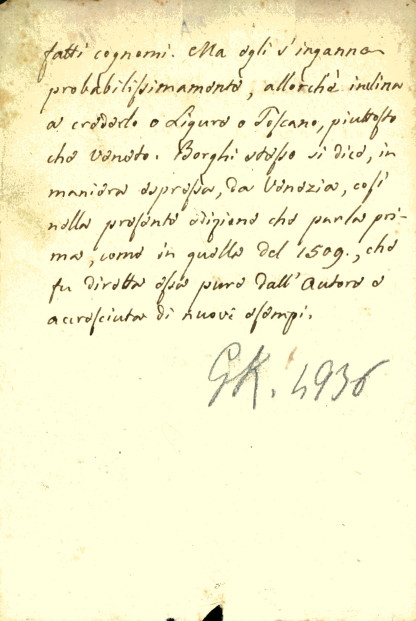 fatti cognomi. Ma egli s'inganna
probabilissimamente, allorchè inclina
a crederlo o Ligure o Toscano, piuttosto
che Veneto. Borghi stesso si dice, in
maniera espressa, da Venezia, così
nella presente edizione che pur la pri-
ma, come in quella del 1509., che
fu diretta essa pure dall'Autore e
accresciuta di nuovi esempi.
GK. 4936